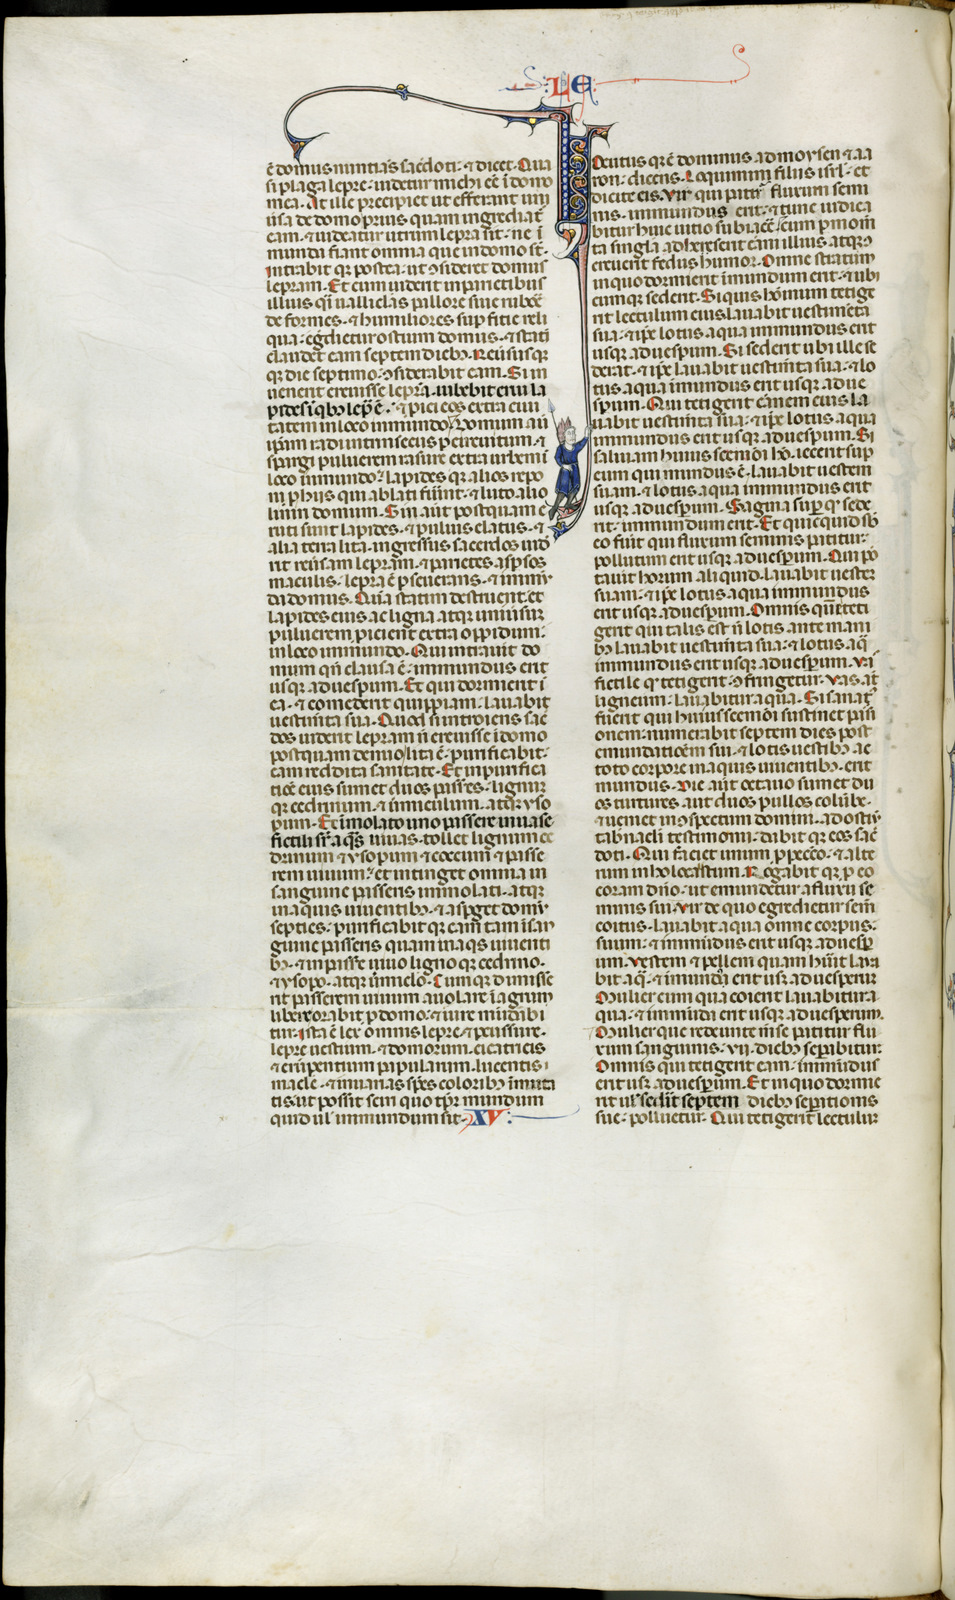 LE
ē domus nuntiās sac̄doti· ⁊ dicet· Qua
si plaga lepre· uidetur michi eē ī domo
mea· At ille precipiet ut efferant uni
u̾sa de domo prius quam ingrediat̄
eam· ⁊ uideatur utrum lepra sit· ne ī
munda fiant omnia que in domo st̄·
intrabit qꝫ postea· ut ꝯsideret domus
lepram· Et cum uiderit in parietibus
illius q̄si ualliclas pallore siue rubore
deformes· ⁊ humiliores sup̄ficie reli
qua· eg̾dietur ostium domus· ⁊ stati
claudet eam septem diebꝫ· Reu̾susqꝫ
qꝫ die septimo· ꝯsiderabit eam· Si in
uenerit creuisse lepra· iubebit erui la
pides ī qꝫ lep̄ ē· ⁊ p̄ici eos extra ciui
tatem in loco inmundo· Domum aū
ip̄am radi intrinsecus p̄ circuitum· ⁊
spargi puluerem rasure extra urbem ī
loco inmundo· lapides qꝫ alios repo
ni p̄ hiis qui ablati fu̾int· ⁊ luto alio
liniri domum· Sin aūt postquam e
ruti sunt lapides· ⁊ puluis elatus· ⁊
alia terra lita· ingressus sacerdos uid̾
it reu̾sam lepram· ⁊ parietes asp̄sos
maculis· lepra ē p̄seuerans· ⁊ inmū
da domus· Quā statim destruent· et
lapides eius ac ligna atqꝫ uniu̾sum
puluerem p̄icient extra oppidum·
in loco inmundo· Qui intrauit do
mum qn̄ clausa ē· inmundus erit
usqꝫ ad uesp̄um· Et qui dormierit ī
ea· ⁊ comederit quippiam· lauabit
uestim̄ta sua· Quod si introiens sac̄
dos uiderit lepram n̄ creuisse ī domo
postquam denuo lita ē· purificabit
eam reddita sanitate· Et in purifica
tiōe eius sumet duos passes· lignum
qꝫ cedrinum· ⁊ u̾miculum· atqꝫ yso
pum· Et īmolato uno passere in uase
fictili sr̄ aq̄s uiuas· tollet lignum ce
drinum ⁊ ysopum ⁊ coccum ⁊ passe
rem uiuum· et intinget omnia in
sanguine passeris immolati· atqꝫ
in aquis uiuentibꝫ· ⁊ asp̄get domū
septies· purificabit qꝫ eam tam ī san
guine passeris quam in aq̄s uiuenti
bꝫ· ⁊ in passe̾ uiuo ligno qꝫ cedrino·
⁊ ysopo· atqꝫ u̾miclo· Cumqꝫ dimise̾
rit passerem uiuum auolare ī agrum
libere orabit p̄ domo· ⁊ iure mūdabi
tur· Ista ē lex omnis lepre· ⁊ p̄cussure·
lepre uestium· ⁊ domorum· cicatricis
⁊ erūpentium papularum· lucentis
macle· ⁊ in uarias sp̄es coloribꝫ īmuta
tis· ut possit sciri quo tp̄r mundum
quid ul̾ inmundum sit· XV
Locutus qꝫ ē dominus ad moysen ⁊ aa
ron· dicens· Loquimini filiis isrl̾· et
dicite eis· Vir qui patit̄ fluxum semi
nis· inmundus erit· ⁊ tunc iudica
bitur huic uitio subiace̾· cum p̄ momē
ta singla adheserit carni illius atqꝫ ꝯ
creuerit fedus humor· Omne stratum
in quo dormierit inmundum erit· ⁊ ubi
cumqꝫ sederit· Si quis hōinum tetige
rit lectulum eius lauabit uestim̄ta
sua· ⁊ ip̄e lotus aqua inmundus erit
usqꝫ ad uesp̄um· Si sederit ubi ille se
derat· ⁊ ip̄e lauabit uestim̄ta sua· ⁊ lo
tus aqua inmundus erit usqꝫ ad ue
sp̄um· Qui tetigerit carnem eius la
uabit uestim̄ta sua· ⁊ ip̄e lotus aqua
inmundus erit usqꝫ ad uesp̄um· Si
saliuam huius scemōi hō· iecerit sup̄
eum qui mundus ē· lauabit uestem
suam· ⁊ lotus aqua inmundus erit
usqꝫ ad uesp̄um· Sagma sup̄ qd̾ sede
rit· inmundum erit· Et quicquid sb̾
eo fu̾it qui fluxum seminis patitur·
pollutum erit usqꝫ ad uesp̄um· Qui por
tauit horum aliquid· lauabit uestez
suam· ⁊ ip̄e lotus aqua inmundus
erit usqꝫ ad uesp̄um· Omnis quē teti
gerit qui talis est n̄ lotis ante mani
bꝫ lauabit uestim̄ta sua· ⁊ lotus aq̄
inmundus erit usqꝫ ad uesp̄um· Vas
fictile qd̾ tetigerit· ꝯfringetur· Vas aūt
ligneum· lauabitur aqua· Si sanat̾
fuerit qui huius scemōi sustinet passi
onem· numerabit septem dies post
emundatiōem sui· ⁊ lotis uestibꝫ ac
toto corpore in aquis uiuentibꝫ· erit
mundus· Die aūt octauo sumet du
os turtures aut duos pullos colūbe·
⁊ ueniet in ꝯspectum domini· ad ostiū
tab̾naculi testimonii· dabit qꝫ eos sac̄
doti· Qui faciet unum p̄ pecc̄o· ⁊ alte
rum in holocaustum· Rogabit qꝫ p̄ eo
coram dn̄o· ut emundetur a fluxu se
minis sui· Vir de quo egredietur sem̄
coitus· lauabit aqua omne corpus
suum· ⁊ inmūdus erit usqꝫ ad uesp̄
um· Vestem ⁊ pellem quam hu̾it laua
bit aq̄· ⁊ inmunda erit usqꝫ ad uesperum
Mulier cum qua coierit lauabitur a
qua· ⁊ inmūda erit usqꝫ ad uesperum·
Mulier que redeunte m̄se patitur flu
xum sanguinis· vii· diebꝫ sep̄abitur·
Omnis qui tetigerit eam· inmūdus
erit usqꝫ ad uesp̄um· Et in quo dormie
rit ul̾ sed̾it septem diebꝫ sep̄ationis
sue· polluetur· Qui tetigerit lectulum